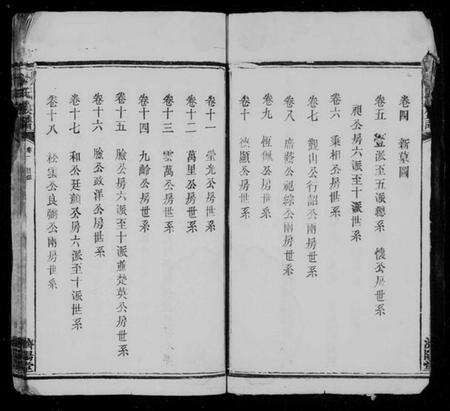 卷四 新墓圖
卷五 派至五派總系 懷公房世系
昶公房六派至十派世系
卷六 秉和公房世系
卷七 觀山公行韶公兩房世系
卷八 公視綜公兩房世系
卷九 恆佩公房世系
卷十 德顯公房世系
卷十一 榮光公房世系
卷十二 萬里公房世系
卷十三 雲萬公房世系
卷十四 九齡公房世系
卷十五 臉公房六派至十派並楚英公房世系
卷十六 臉公政洋公房世系
卷十七 和公廷顯公房六派至十派世系
卷十八 松雲公良弼公兩房世系
濟陽堂